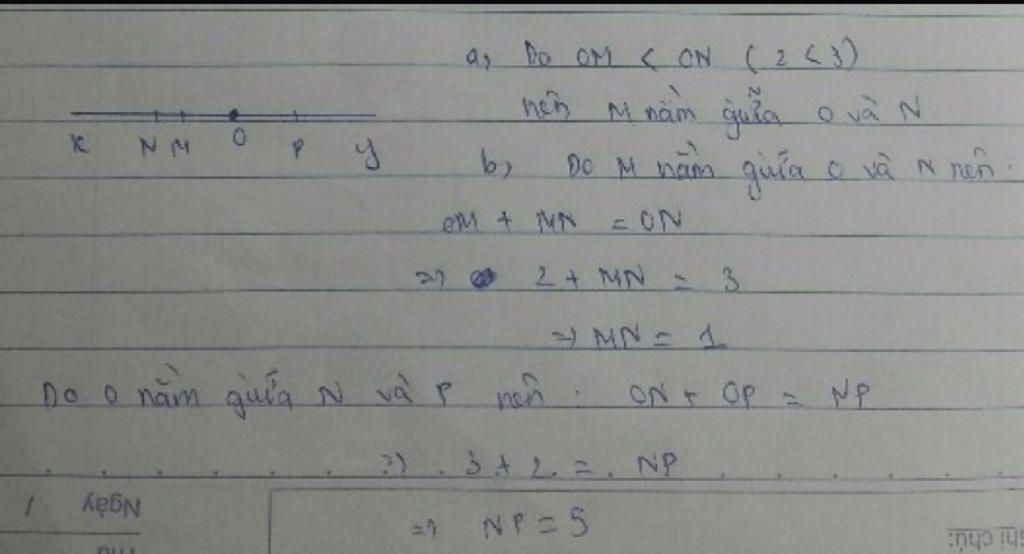 a, Do OM < ON ( 2 < 3 )
nên M nằm giữa O và N
x N M O P y
b, Do M nằm giữa O và N nên :
OM + MN = ON
=> 2 + MN = 3
=> MN = 1
Do O nằm giữa N và P nên : ON + OP = NP
=> 3 + 2 = NP
Ngày /
=> NP = 5